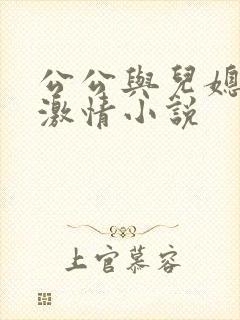 公公與兒媳
激情小說
上官慕容